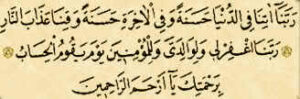 رَبَّنَا اٰتِنَا فِي الدُّنْيَا حَسَنَةً وَفِي الْاٰخِرَةِ حَسَنَةً وَقِنَا عَذَابَ النَّارِ
رَبَّنَا اغْفِرْ لِي وَلِوَالِدَيَّ وَلِلْمُؤْمِنِينَ يَوْمَ يَقُومُ الْحِسَابُ
بِرَحْمَتِكَ يَا أَرْحَمَ الرَّاحِمِينَ